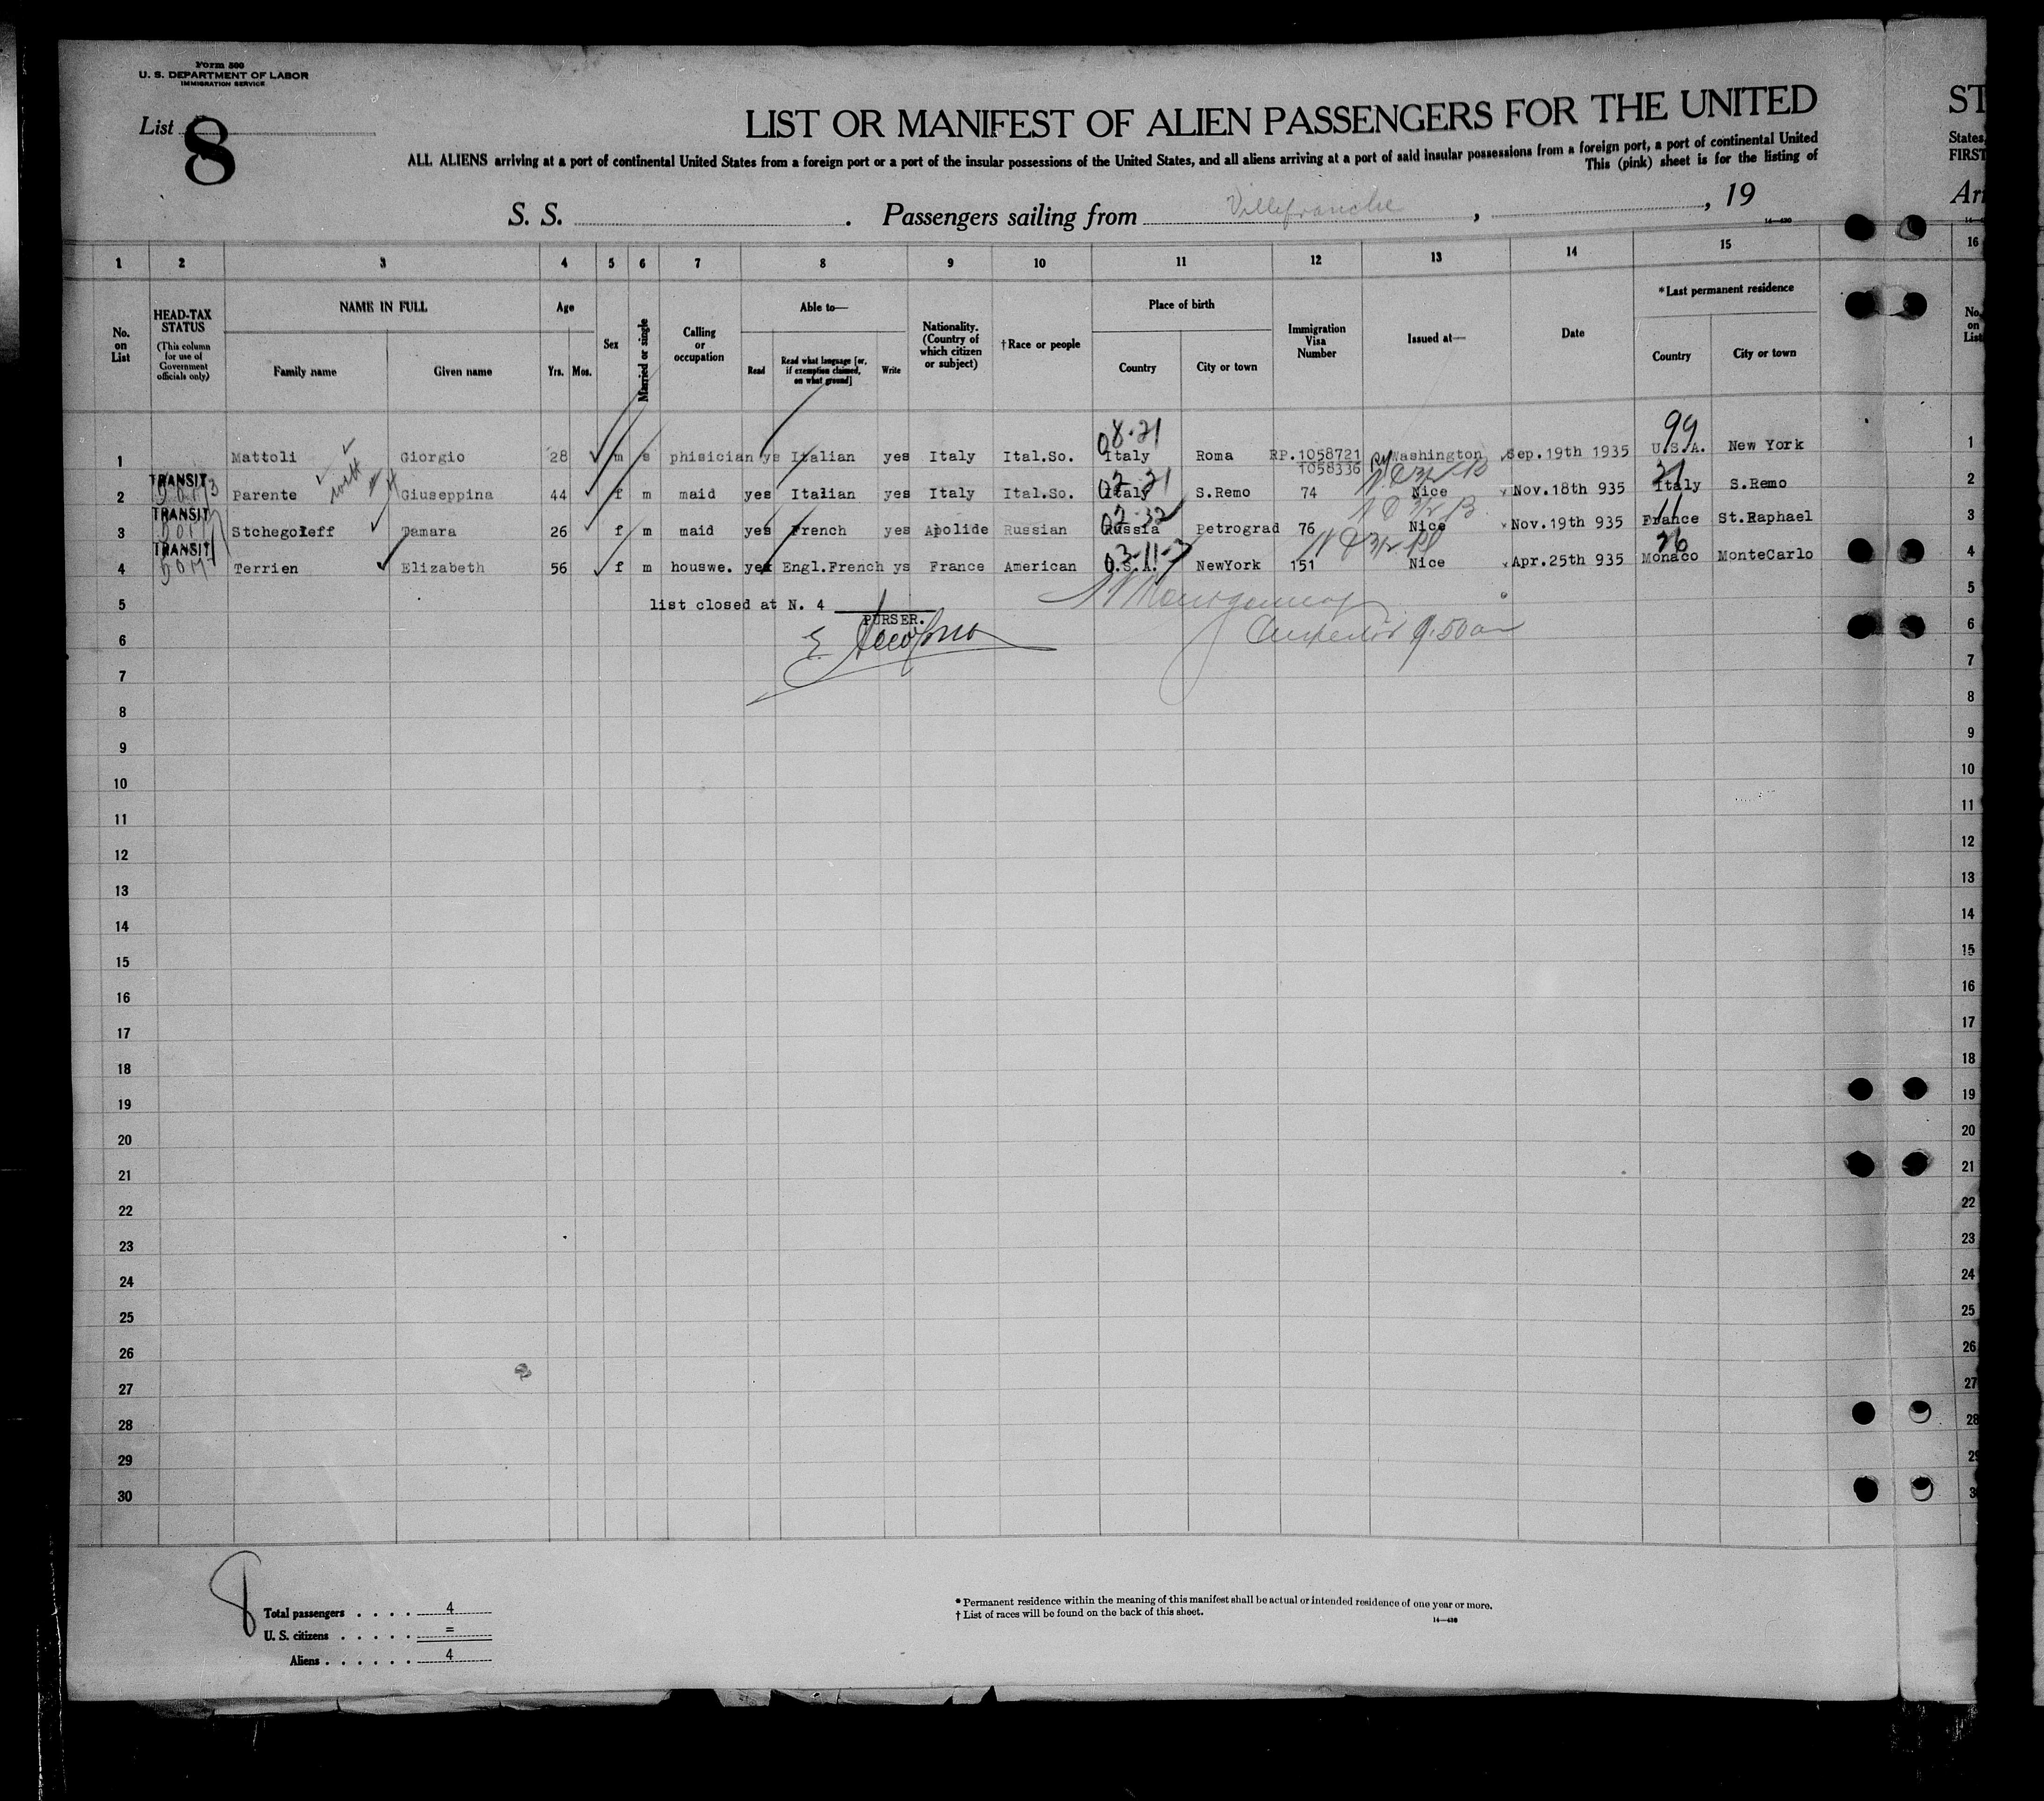 Form 500
U. S. DEPARTMENT OF LABOR
IMMIGRATION SERVICE
List 8
LIST OR MANIFEST OF ALIEN PASSENGERS FOR THE UNITED ST
ALL ALIENS arriving at a port of continental United States from a foreign port or a port of the insular possessions of the United States, and all aliens arriving at a port of said insular possessions from a foreign port, a port of continental United States,
This (pink) sheet is for the listing of FIRST
S. S. . Passengers sailing from Villefranche , , 19
14—430
1 2 3 4 5 6 7 8 9 10 11 12 13 14 15 16
No. on List
HEAD-TAX STATUS
(This column for use of Government officials only)
NAME IN FULL
Family name Given name
Age
Yrs. Mos.
Sex
Married or single
Calling or occupation
Able to—
Read
Read what language [or, if exemption claimed, on what ground]
Write
Nationality. (Country of which citizen or subject)
†Race or people
Place of birth
Country City or town
Immigration Visa Number
Issued at—
Date
*Last permanent residence
Country City or town
No. on List
08-21 99
1 Mattoli Giorgio 28 m s phisician ys Italian yes Italy Ital.So. Italy Roma RP.1058721 Washington Sep.19th 1935 U.S.A. New York 1
1058336
TRANSIT
2 Parente Giuseppina 44 f m maid yes Italian yes Italy Ital.So. Italy S.Remo 74 Nice Nov.18th 935 Italy S.Remo 2
TRANSIT
3 Stchegoleff Tamara 26 f m maid yes French yes Apolide Russian Russia Petrograd 76 Nice Nov.19th 935 France St.Raphael 3
TRANSIT
4 Terrien Elizabeth 56 f m houswe. yes Engl.French ys France American U.S.A. NewYork 151 Nice Apr.25th 935 Monaco MonteCarlo 4
5 list closed at N. 4 5
PURSER.
Montgomery
6 Inspector 9.50am 6
7 7
8 8
9 9
10 10
11 11
12 12
13 13
14 14
15 15
16 16
17 17
18 18
19 19
20 20
21 21
22 22
23 23
24 24
25 25
26 26
27 27
28 28
29 29
30 3
8
Total passengers . . . . 4
U. S. citizens . . . . . =
Aliens . . . . . . 4
* Permanent residence within the meaning of this manifest shall be actual or intended residence of one year or more.
† List of races will be found on the back of this sheet.
14—430